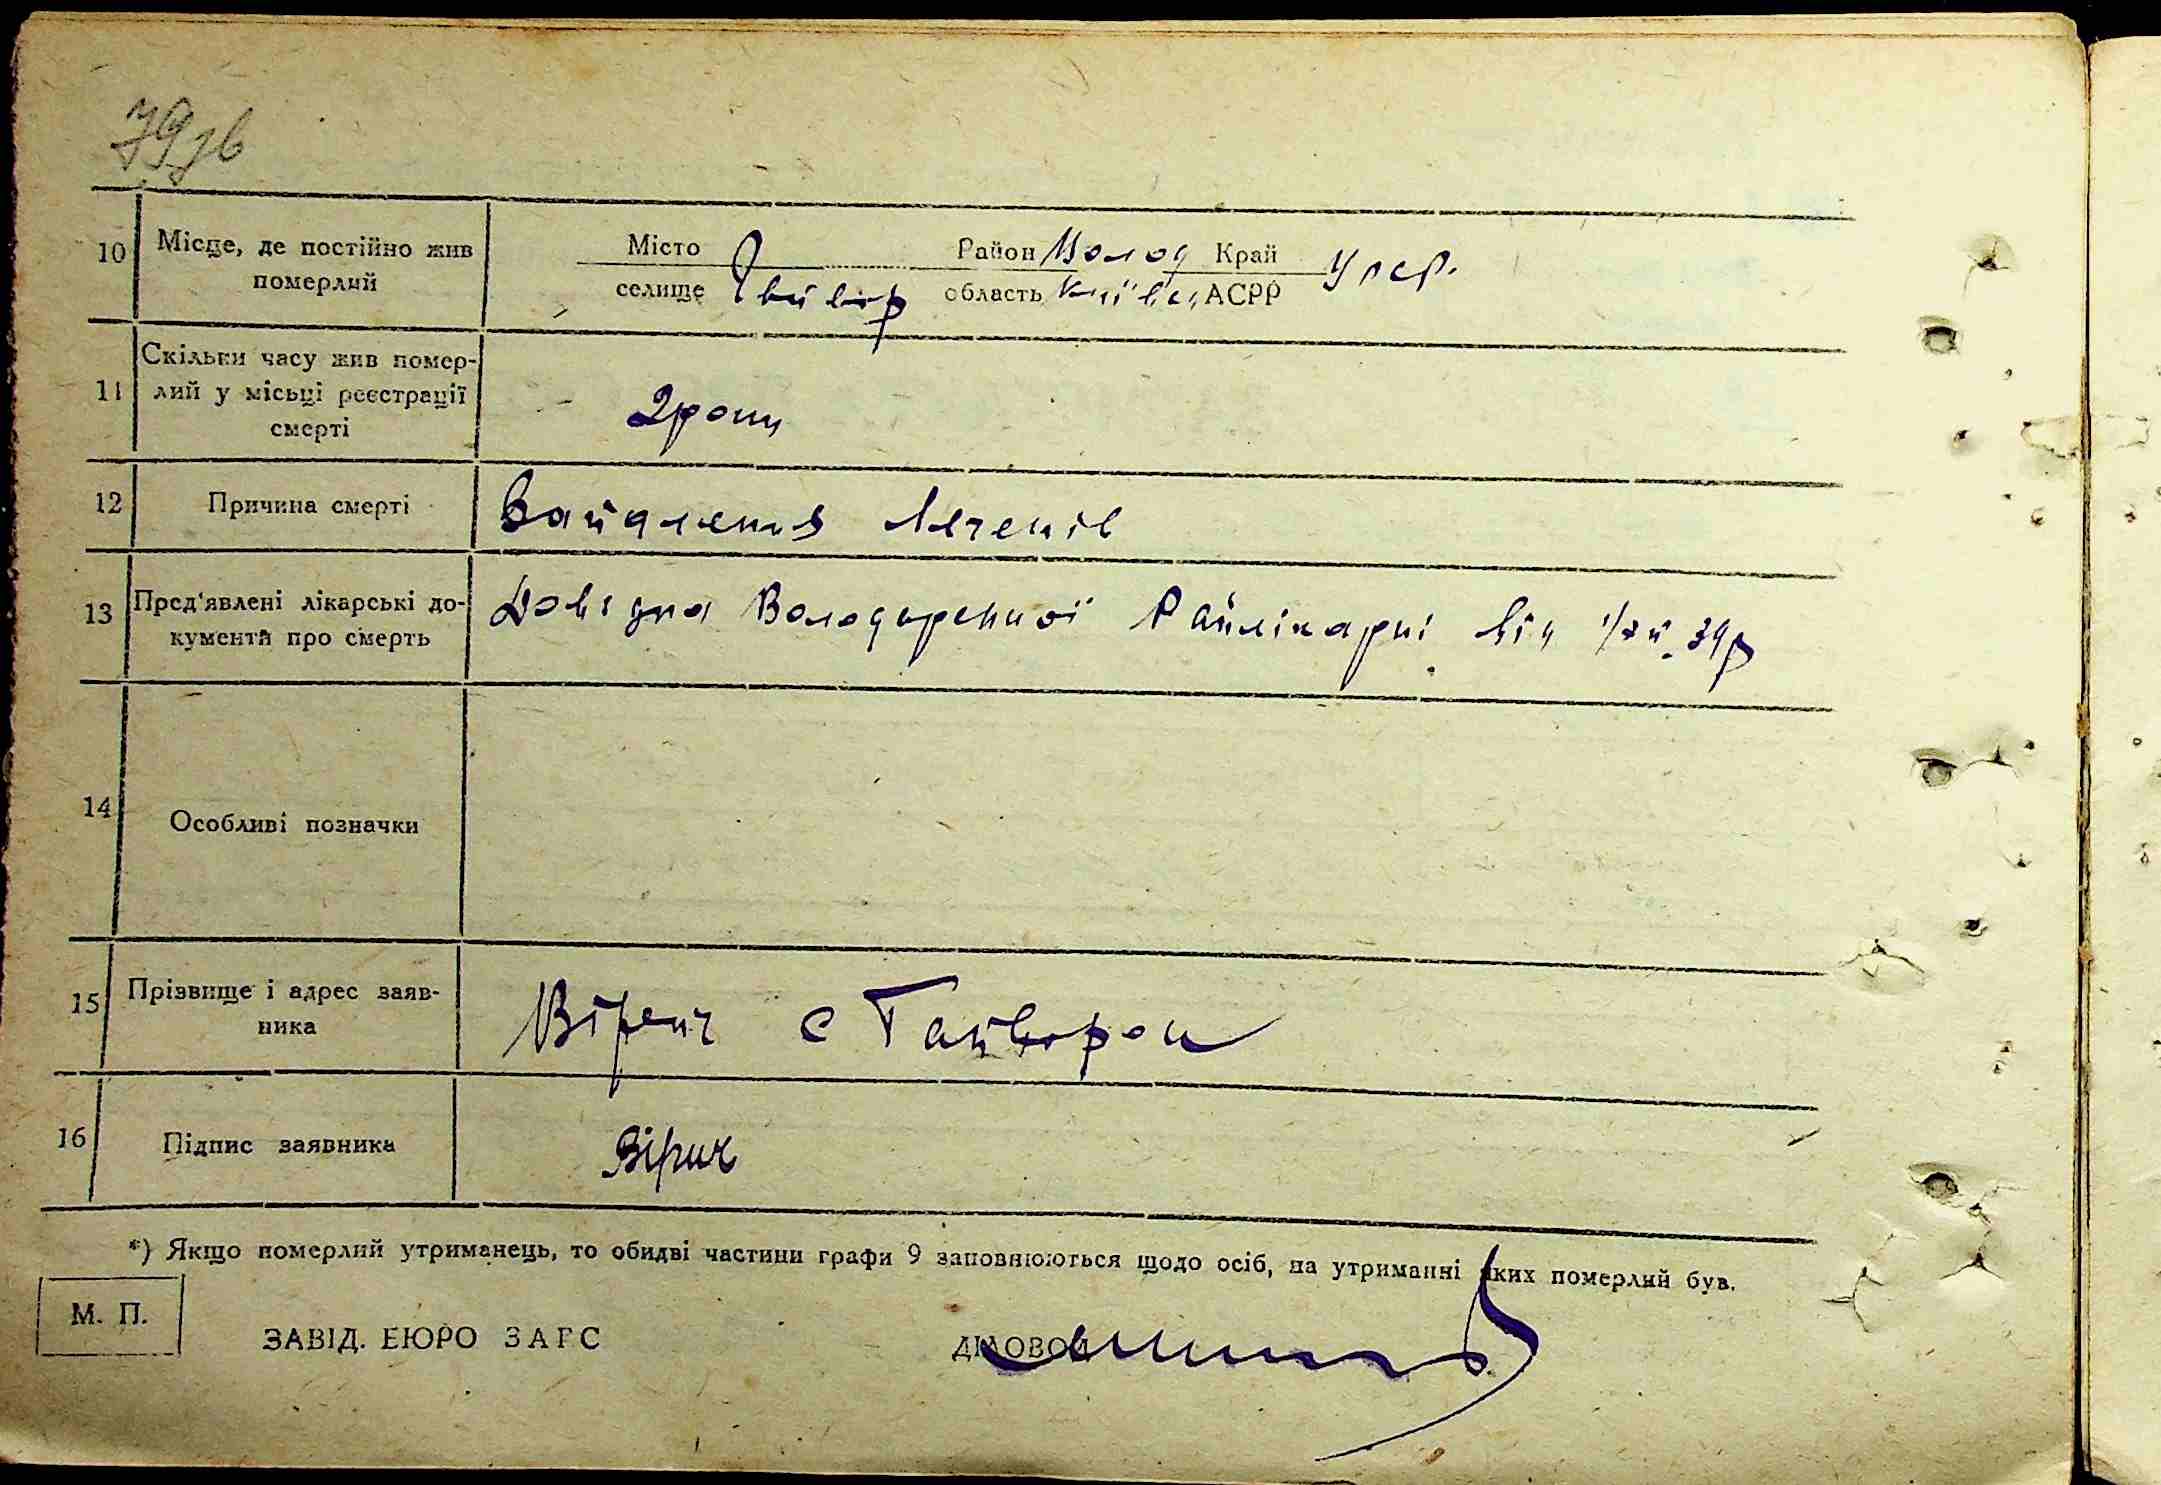 79зв
10 Місце, де постійно жив померлий
Місто Район Волод Край УРСР.
селище Гайвор область Київськ АСРР
11 Скільки часу жив померлий у місьці реєстрації смерті
2 роки
12 Причина смерті
Запалення Легенів
13 Пред'явлені лікарські документи про смерть
Довідка Володарської Райлікарні від 39р
14 Особливі позначки
15 Прізвище і адрес заявника
Вірич с Гайворон
16 Підпис заявника
Вірич
*) Якщо померлий утриманець, то обидві частини графи 9 заповнюються щодо осіб, на утриманні яких померлий був.
М. П.
ЗАВІД. БЮРО ЗАГС ДІЛОВОД